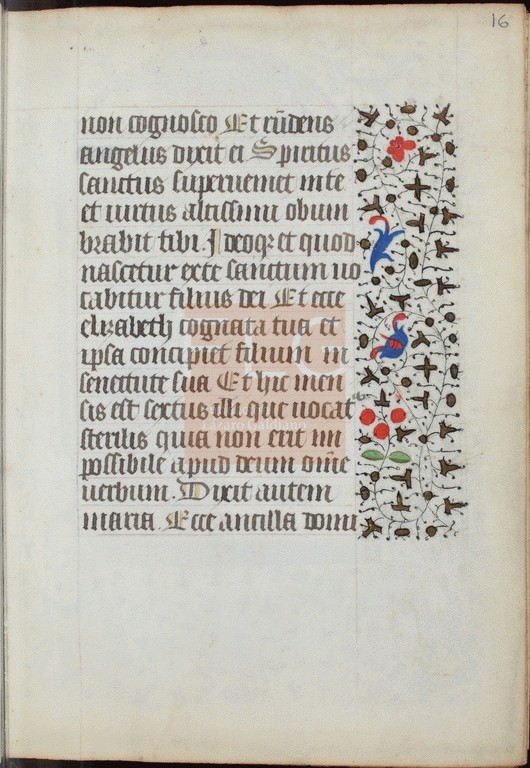 16
non cognosco Et rn̄dens
angelus dixit ei Spiritus
sanctus superueniet in te
et uirtus altissimi obum
brabit tibi. Ideoqꝫ et quod
nascetur exte sanctum uo
cabitur filius dei Et ecce
elizabeth cognata tua et
ipsa concipiet filium in
senectute sua Et hic men
sis est sextus illi que uocat᷑
sterilis quia non erit im
possibile apud deum om̄e
uerbum. Dixit autem
maria. Ecce ancilla domi
FLG
Lázaro Galdiano